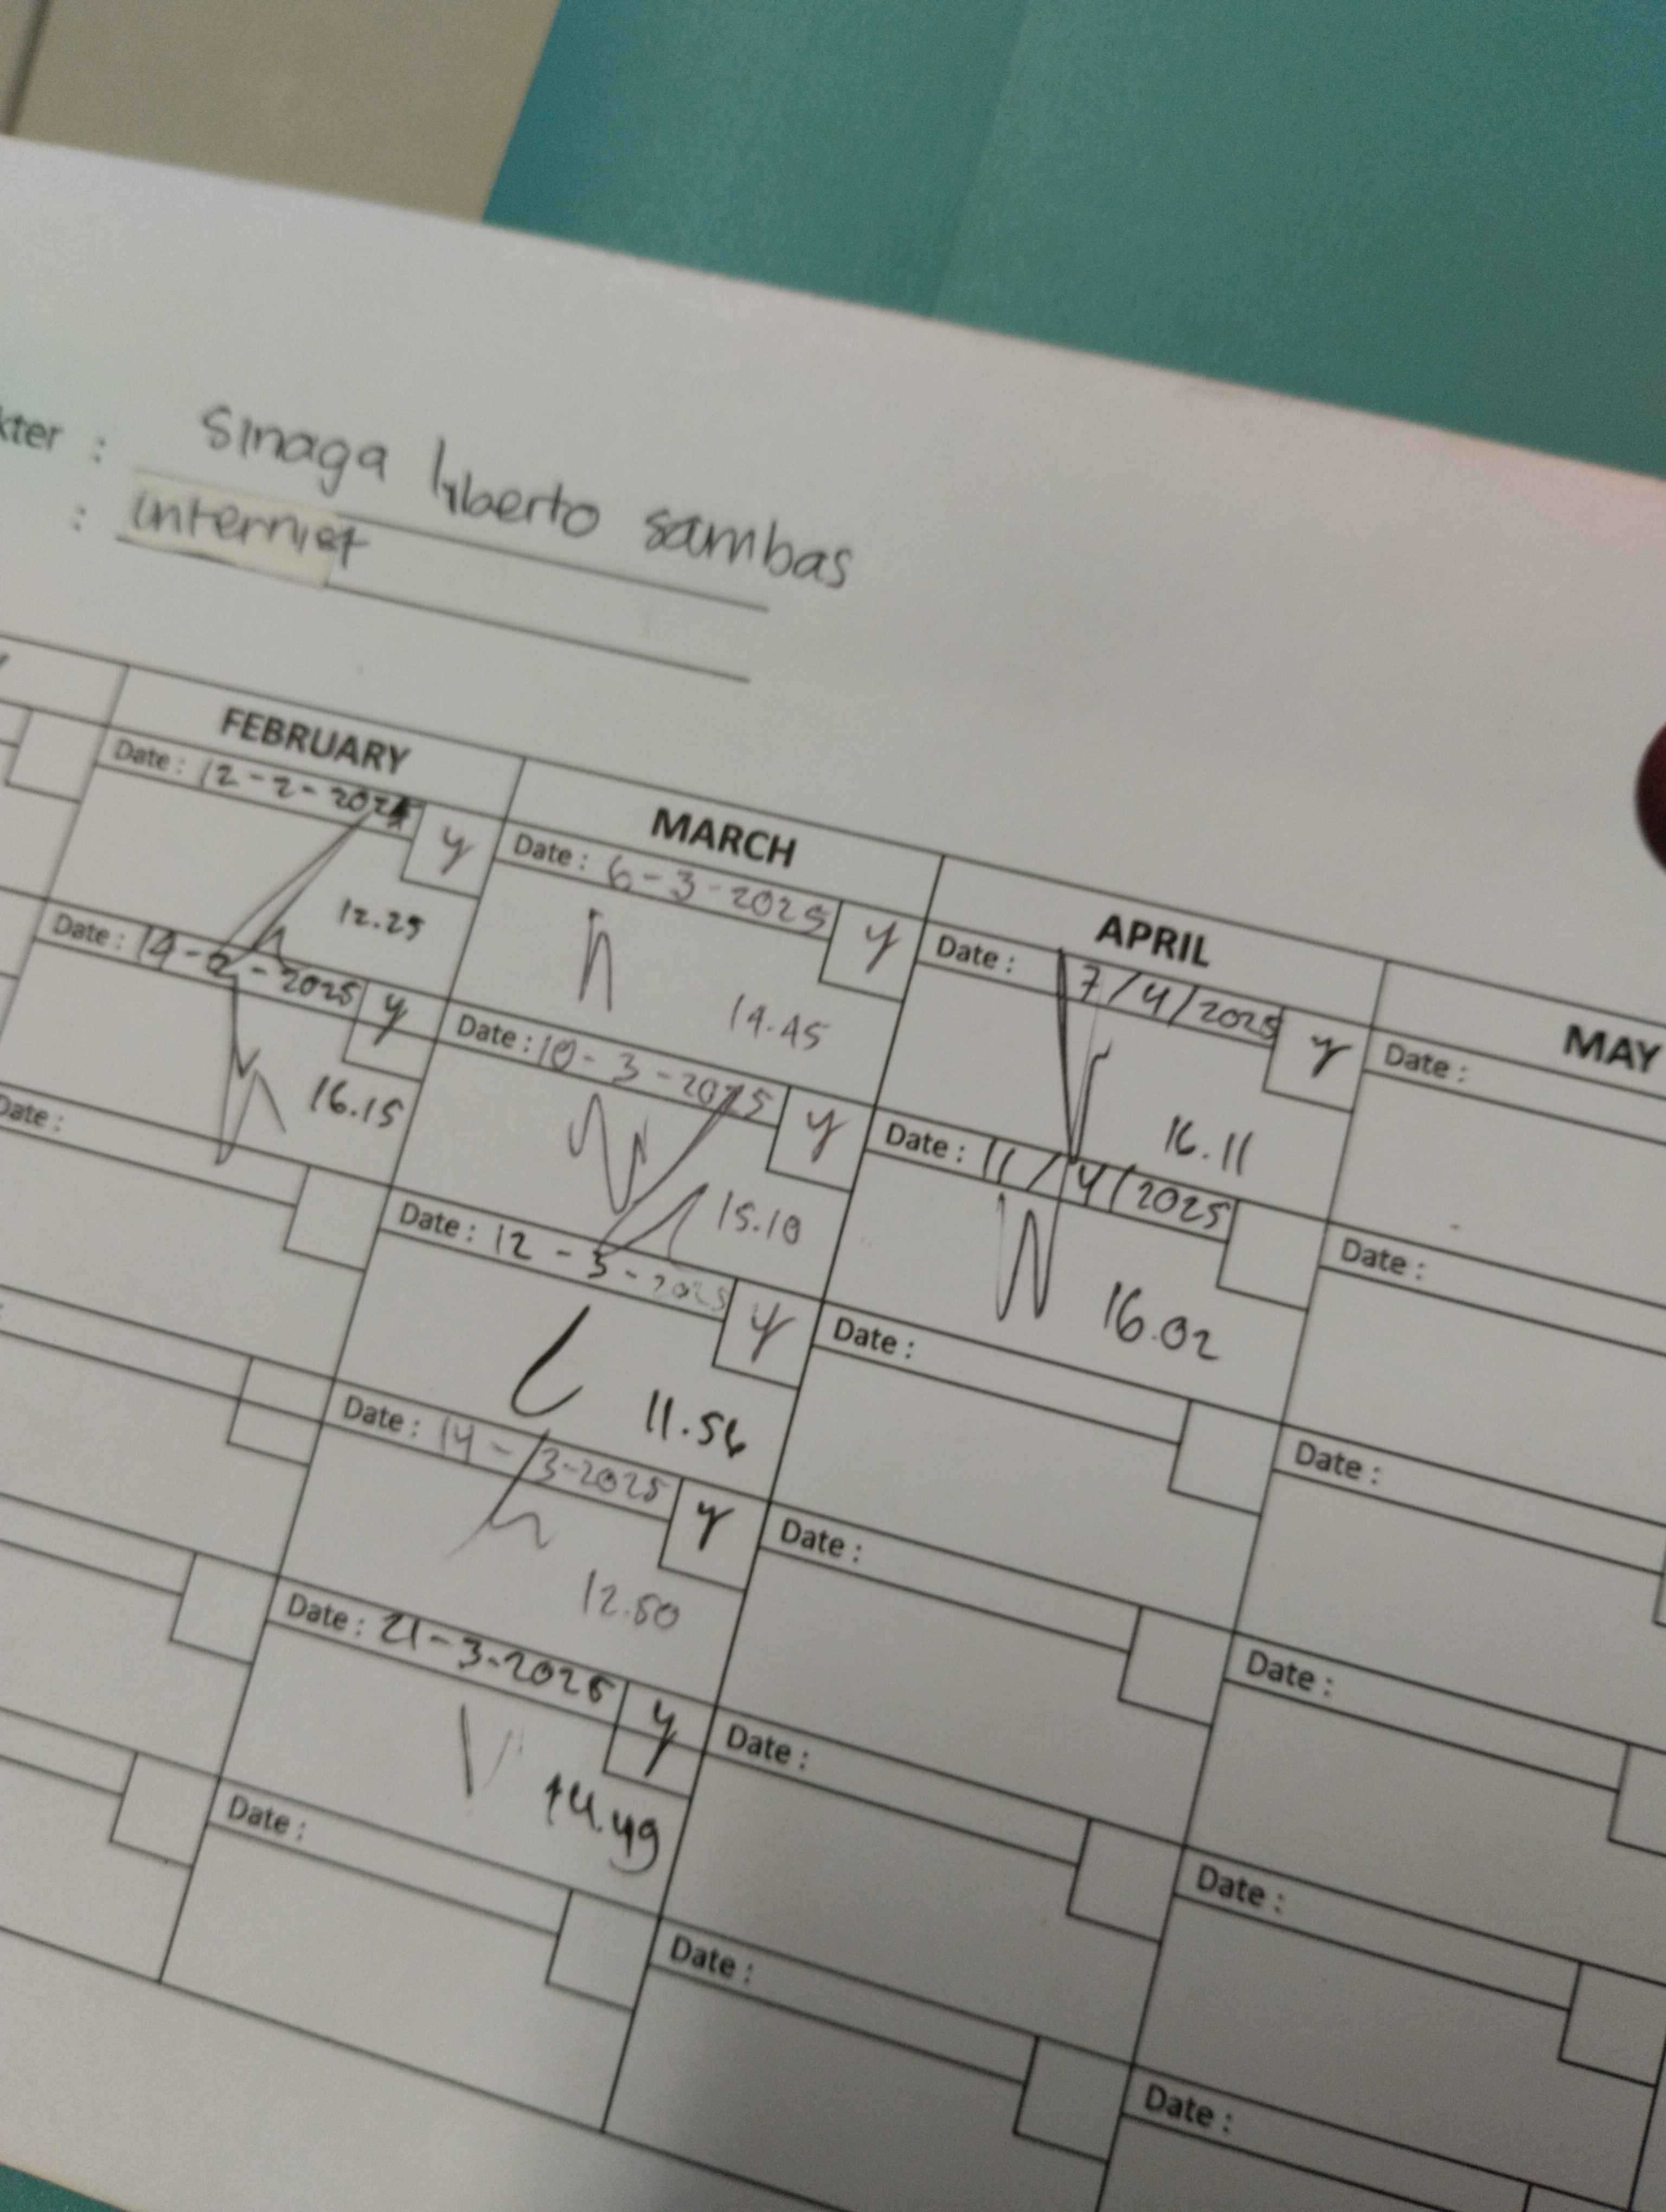 kter : Sinaga liberto sambas
: internist
FEBRUARY
Date : 12-2-2025 y
12.25
Date : 14-2-2025 y
16.15
Date :
MARCH
Date : 6-3-2025 y
14.45
Date : 10-3-2025 y
15.10
Date : 12-3-2025 y
11.56
Date : 14-3-2025 y
12.50
Date : 21-3-2025 y
14.49
Date :
APRIL
Date : 7/4/2025 y
16.11
Date : 11/4/2025
16.02
Date :
Date :
Date :
Date :
MAY
Date :
Date :
Date :
Date :
Date :
Date :